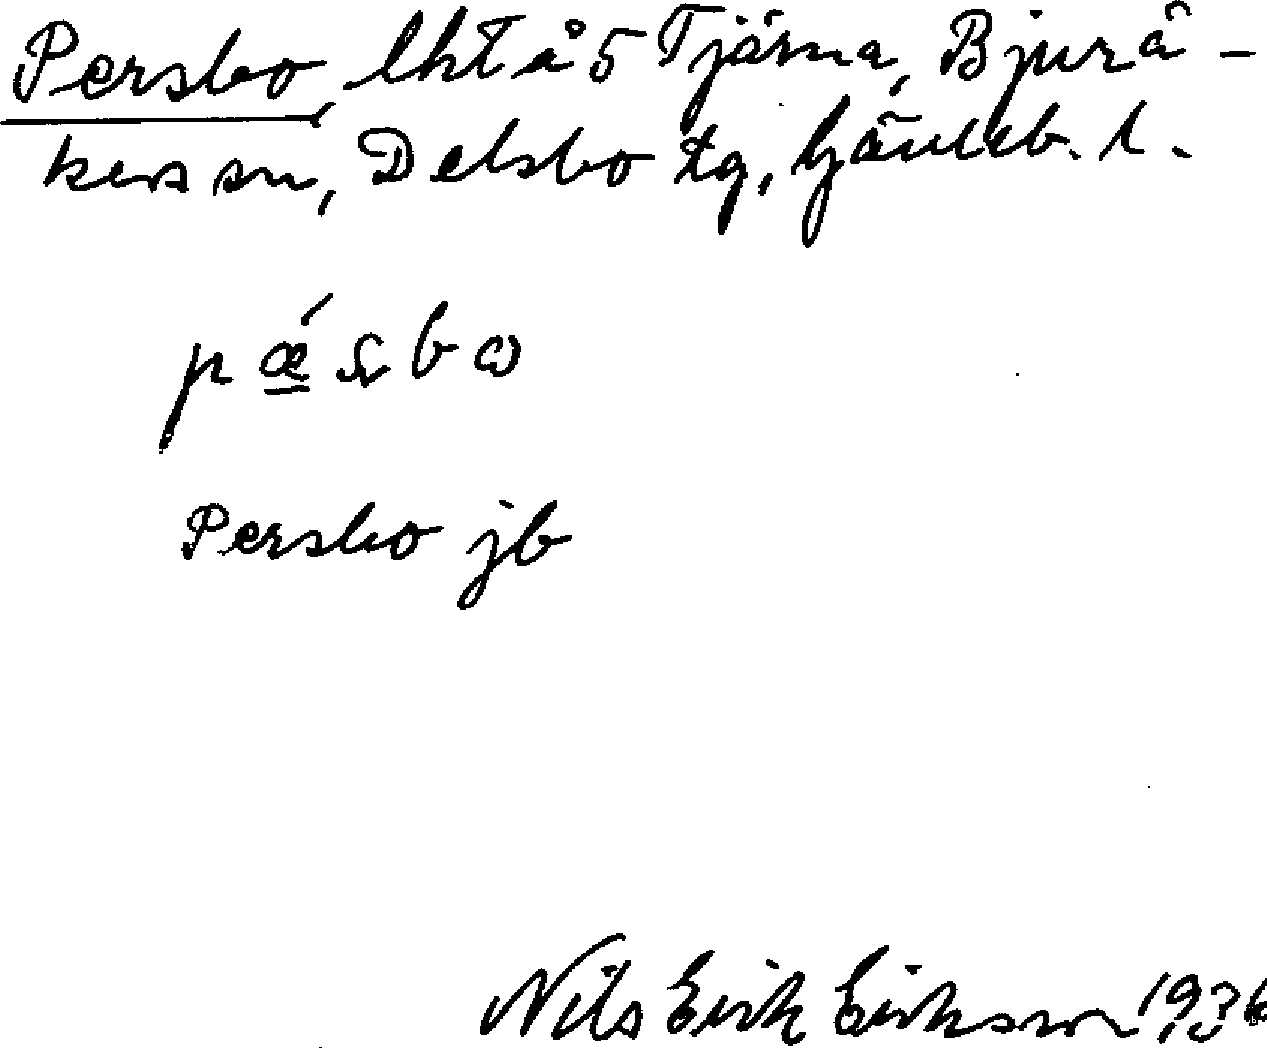 Persbo, lht å 5 Tjärna, Bjurå-
kers sn, Delsbo tg, Gävleb. l.
Persbo jb
Nils Erik Eriksson 1936